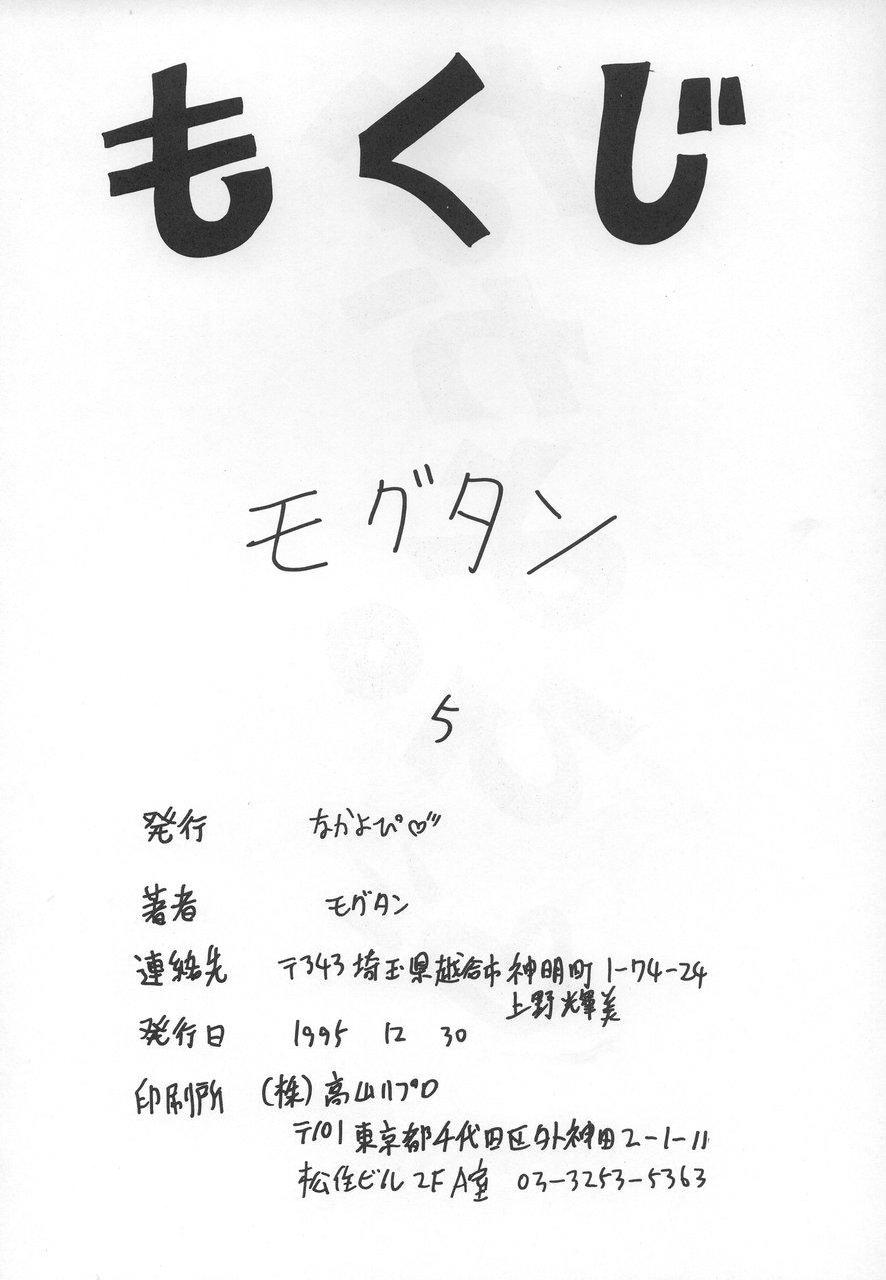 もくじ
モグタン
5
発行 なかよぴ♡゛
著者 モグタン
連絡先 〒343 埼玉県越谷市神明町 1-74-24
上野輝美
発行日 1995 12 30
印刷所 (株)高山リプロ
〒101 東京都千代田区外神田2-1-11
松住ビル 2F A室 03-3253-5363